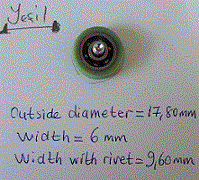 Yeşil
Outside diameter=17,80mm
Width=6mm
Width with rivet=9,60mm